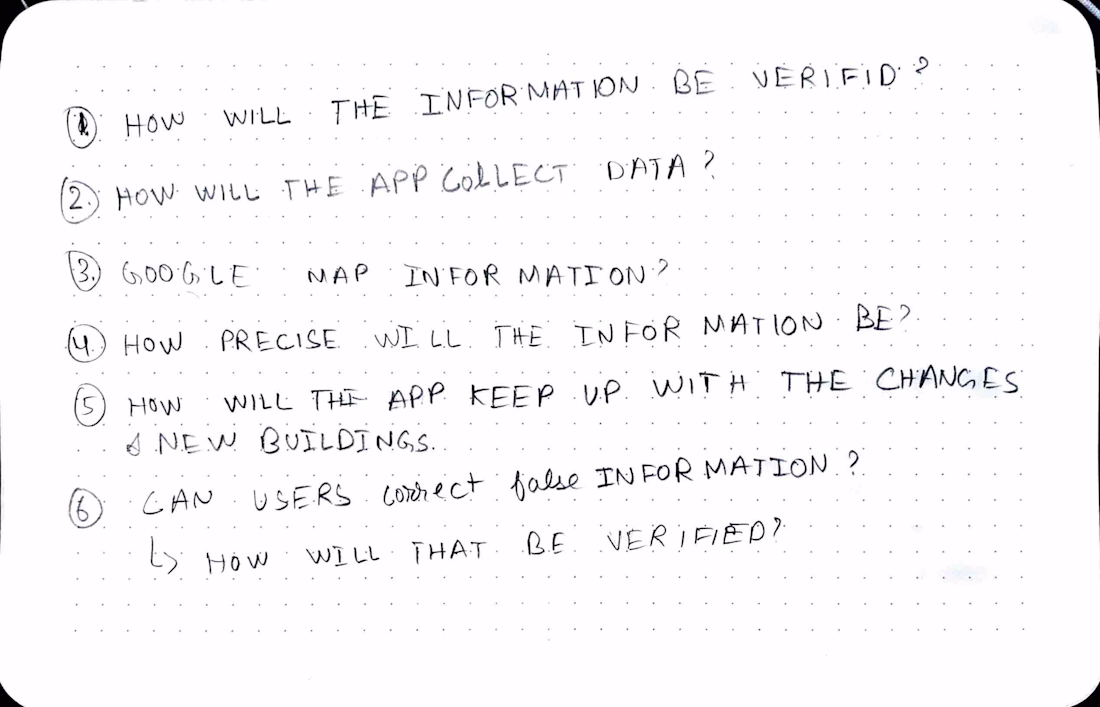 1. HOW WILL THE INFORMATION BE VERIFID?
2. HOW WILL THE APP COLLECT DATA?
3. GOOGLE MAP INFORMATION?
4. HOW PRECISE WILL THE INFORMATION BE?
5 HOW WILL THE APP KEEP UP WITH THE CHANGES
& NEW BUILDINGS.
6 CAN USERS correct false INFORMATION?
↳ HOW WILL THAT BE VERIFIED?